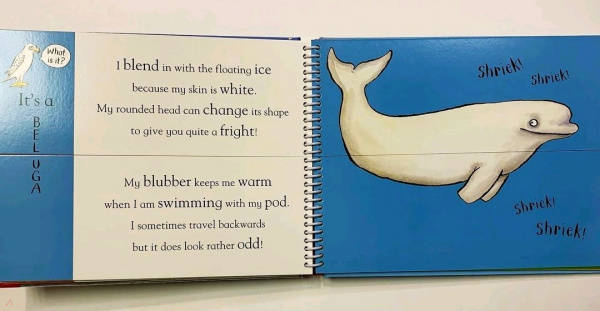 What
is it?
It's a
B
E
L
U
G
A
I blend in with the floating ice
because my skin is white.
My rounded head can change its shape
to give you quite a fright!
My blubber keeps me warm
when I am swimming with my pod.
I sometimes travel backwards
but it does look rather odd!
Shriek!
Shriek!
Shriek!
Shriek!